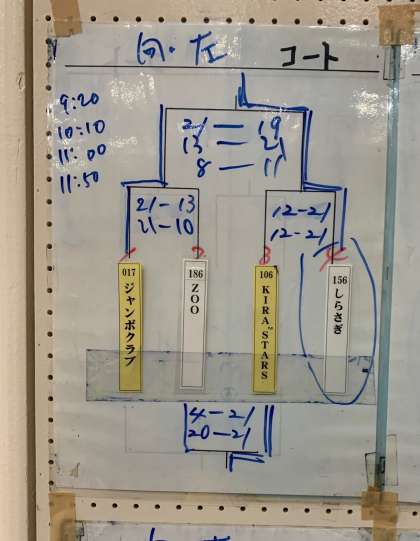 向・左 コート
9:20
10:10
11:00
11:50
21 — 19
13 — 21
8 — 11
21-13
21-10
12-21
12-21
1 2 3 4
017 ジャンボクラブ
186 ZOO
106 KIRA☆STARS
156 しらさぎ
4-21
20-21